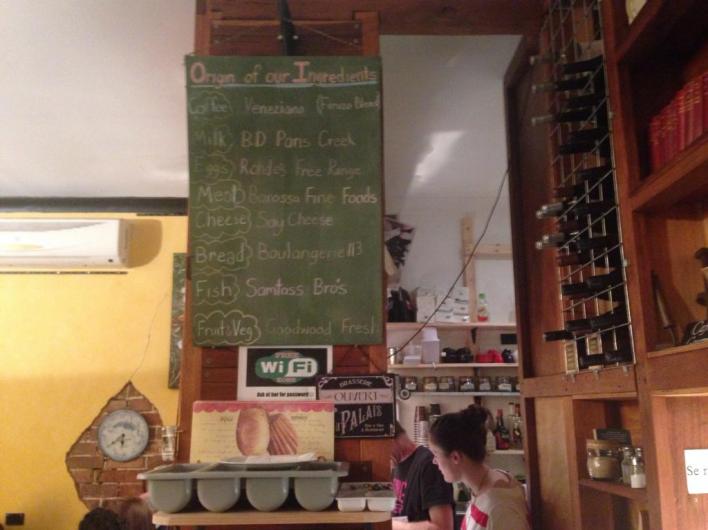 Origin of our Ingredients
Coffee Veneziano (Forza Blend)
Milk B.D Paris Creek
Eggs Rohde's Free Range
Meat Barossa Fine Foods
Cheese Say Cheese
Bread Boulangerie 113
Fish Samtass Bro's
Fruit & Veg Goodwood Fresh
FREE
Wi Fi
ZONE
Ask at bar for password
BRASSERIE
OUVERT
PALAIS
Se r